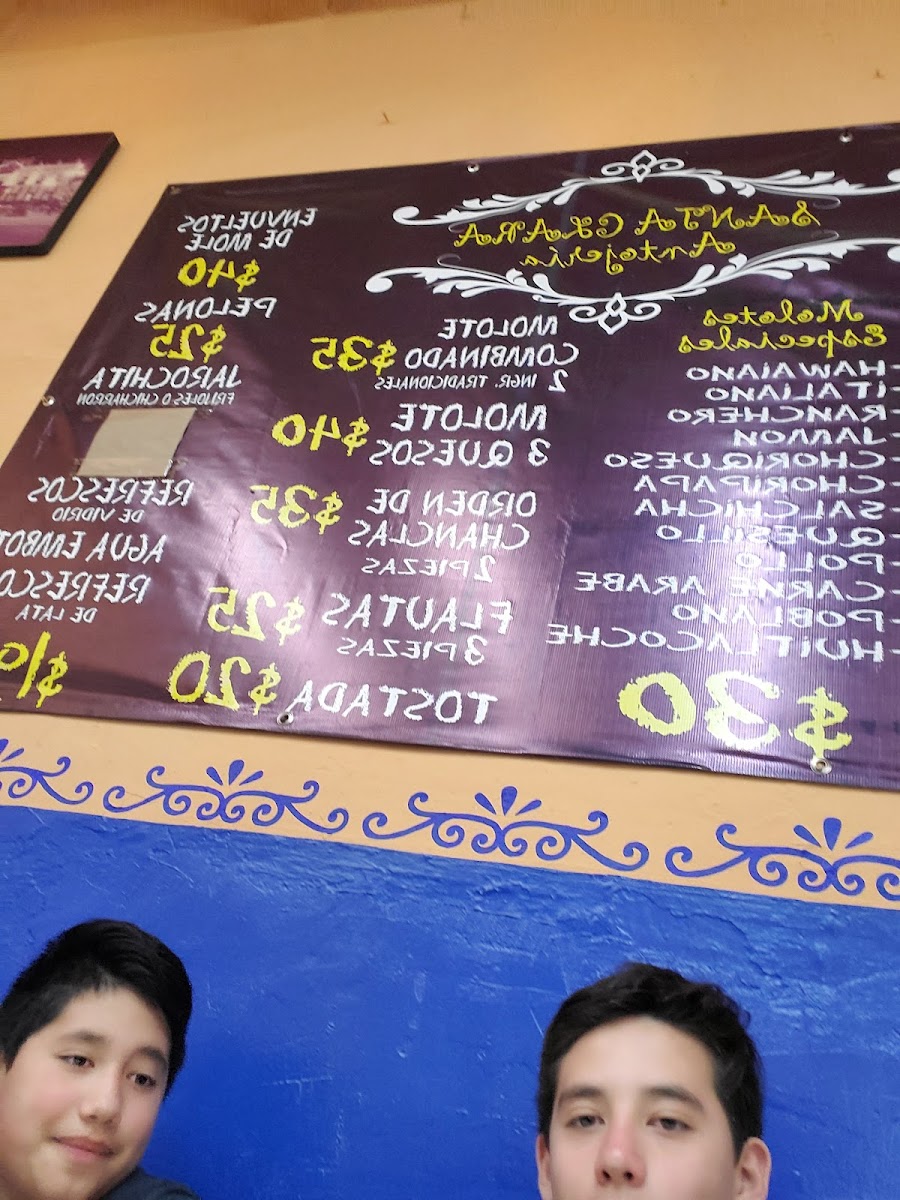 SANTA CLARA
Antojeria
Molotes
Especiales
-HAWAIANO
-ITALIANO
-RANCHERO
-JAMON
-CHORIQUESO
-CHORIPAPA
-SALCHICHA
-QUESILLO
-POLLO
-CARNE ARABE
-POBLANO
-HUITLACOCHE
$30
MOLOTE
COMBINADO $35
2 INGR. TRADICIONALES
MOLOTE
3 QUESOS $40
ORDEN DE
CHANCLAS $35
2 PIEZAS
FLAUTAS $25
3 PIEZAS
TOSTADA $20
ENVUELTOS
DE MOLE
$40
PELONAS
$25
JAROCHITA
FRIJOLES O CHICHARRON
REFRESCOS
DE VIDRIO
AGUA
REFRESCO
DE LATA